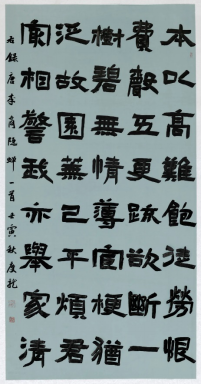 本以高難飽徒勞恨
費聲五更疎欲斷一
樹碧無情薄宦梗猶
泛故園蕪已平煩君
冣相警我亦舉家清
右錄唐李商隱蟬一首壬寅秋度